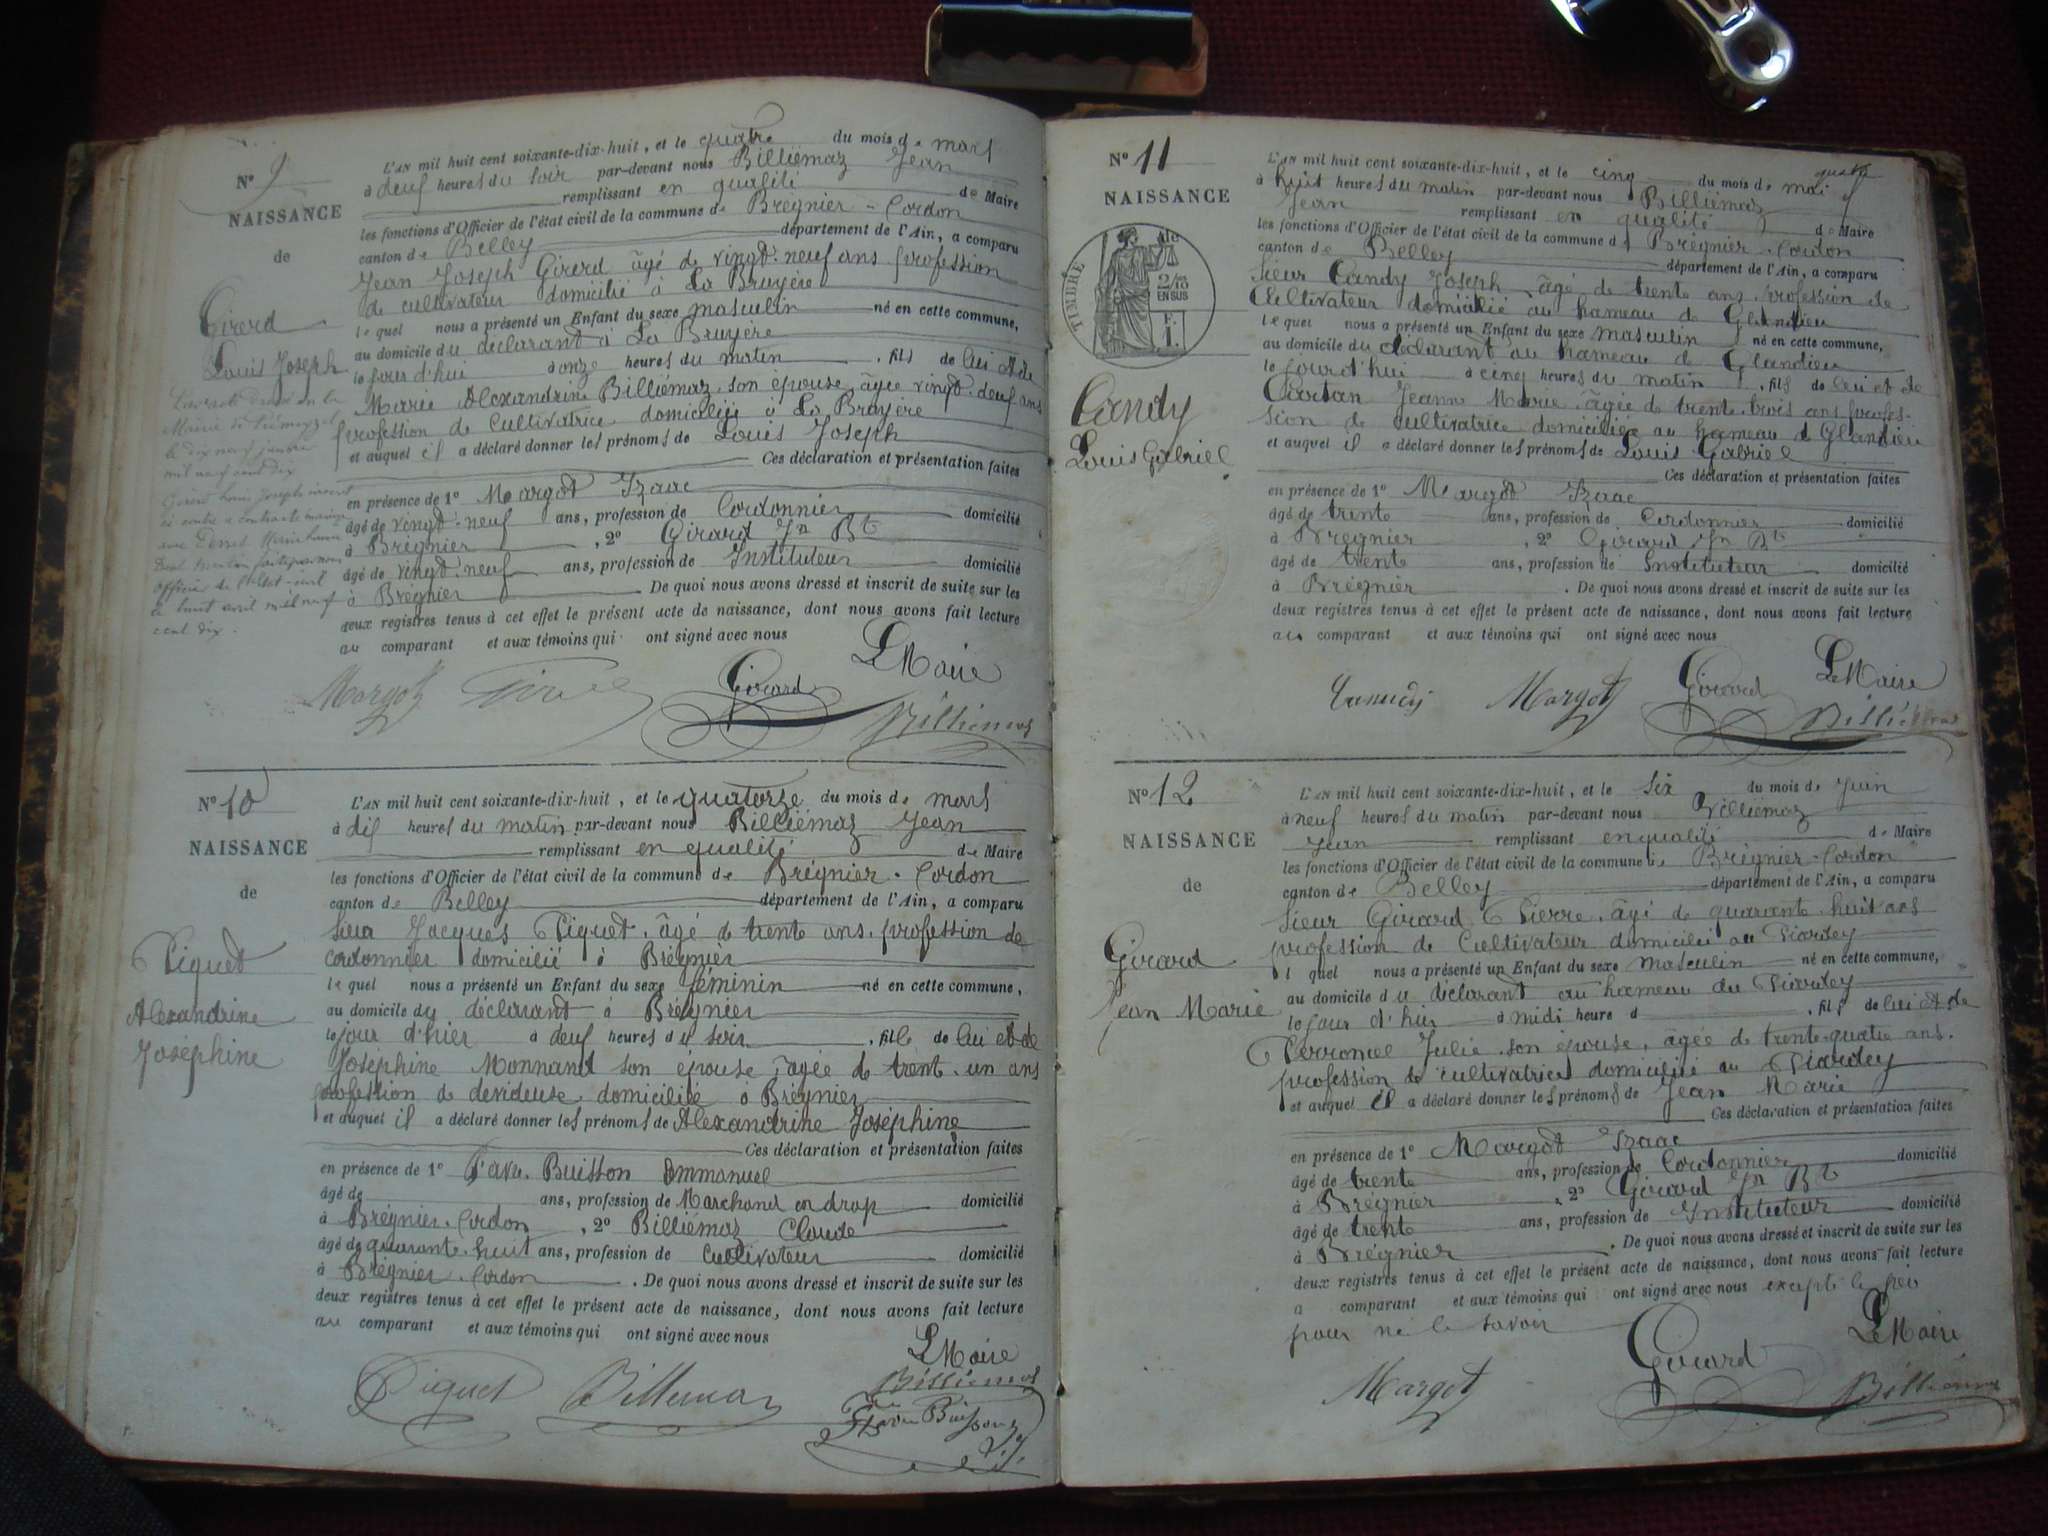 N° 9
NAISSANCE
de
Girerd
Louis Joseph
L'AN mil huit cent soixante-dix-huit, et le quatre du mois de mars
à deuf heures du soir par-devant nous Billiémaz Jean
remplissant en qualité de Maire
les fonctions d'Officier de l'état civil de la commune de Brégnier-Cordon
canton de Belley département de l'Ain, a comparu
Jean Joseph Girerd âgé de vingt-neuf ans profession
de cultivateur domicilié à La Bruyère
le quel nous a présenté un Enfant du sexe masculin né en cette commune,
au domicile du déclarant à La Bruyère
le jour d'hui à onze heures du matin, fils de lui et de
Marie Alexandrine Billiémaz son épouse âgée vingt-deuf ans
profession de Cultivatrice domiciliée à La Bruyère
et auquel il a déclaré donner les prénoms de Louis Joseph
Ces déclaration et présentation faites
en présence de 1° Margot Izaac
âgé de vingt-neuf ans, profession de Cordonnier domicilié
à Brégnier, 2° Girard Jn Bte
âgé de vingt-neuf ans, profession de Instituteur domicilié
à Brégnier. De quoi nous avons dressé et inscrit de suite sur les
deux registres tenus à cet effet le présent acte de naissance, dont nous avons fait lecture
au comparant et aux témoins qui ont signé avec nous
Le Maire
Margot Girerd Girard Billiémaz
mairie de
le dix neuf janvier
mil neuf cent dix
Girerd Louis Joseph inscrit
ci contre a contracté mariage
avec
Dont mention faite par nous
officier de l'état-civil
le huit avril mil neuf
cent dix.
N° 10
NAISSANCE
de
Piquet
Alexandrine
Joséphine
L'AN mil huit cent soixante-dix-huit, et le quatorze du mois de mars
à dix heures du matin par-devant nous Billiémaz Jean
remplissant en qualité de Maire
les fonctions d'Officier de l'état civil de la commune de Brégnier-Cordon
canton de Belley département de l'Ain, a comparu
Sieur Jacques Piquet, âgé de trente ans, profession de
cordonnier domicilié à Brégnier
le quel nous a présenté un Enfant du sexe féminin né en cette commune,
au domicile du déclarant à Brégnier
le jour d'hier à deuf heures du soir, fille de lui et de
Joséphine Monnand son épouse, âgée de trent-un ans
profession de devideuse domiciliée à Brégnier
et auquel il a déclaré donner les prénoms de Alexandrine Joséphine
Ces déclaration et présentation faites
en présence de 1° Favre-Buisson Emmanuel
âgé de ans, profession de Marchand en drap domicilié
à Brégnier-Cordon, 2° Billiémaz Claude
âgé de quarante-huit ans, profession de Cultivateur domicilié
à Brégnier-Cordon. De quoi nous avons dressé et inscrit de suite sur les
deux registres tenus à cet effet le présent acte de naissance, dont nous avons fait lecture
au comparant et aux témoins qui ont signé avec nous
Le Maire
Piquet Billiemaz Billiémaz
Favre Buisson
N° 11
NAISSANCE
de
TIMBRE
2/10
EN SUS
F.
1.
Candy
Louis Gabriel
L'AN mil huit cent soixante-dix-huit, et le cinq du mois de mai
à huit heures du matin par-devant nous Billiémaz
Jean remplissant en qualité de Maire
les fonctions d'Officier de l'état civil de la commune de Brégnier-Cordon
canton de Belley département de l'Ain, a comparu
Sieur Candy Joseph âgé de trente ans, profession de
Cultivateur domicilié au hameau de Glandieu
le quel nous a présenté un Enfant du sexe masculin né en cette commune,
au domicile du déclarant au hameau de Glandieu
le jourd'hui à cinq heures du matin, fils de lui et de
Jeanne Marie, âgée de trente-trois ans profes-
sion de cultivatrice domiciliée au hameau de Glandieu
et auquel il a déclaré donner les prénoms de Louis Gabriel
Ces déclaration et présentation faites
en présence de 1° Margot Izaac
âgé de trente ans, profession de Cordonnier domicilié
à Brégnier, 2° Girard Jn Bte
âgé de trente ans, profession de Instituteur domicilié
à Brégnier. De quoi nous avons dressé et inscrit de suite sur les
deux registres tenus à cet effet le présent acte de naissance, dont nous avons fait lecture
au comparant et aux témoins qui ont signé avec nous
Le Maire
Margot Girard Billiémaz
N° 12
NAISSANCE
de
Girard
Jean Marie
L'AN mil huit cent soixante-dix-huit, et le six du mois de Juin
à neuf heures du matin par-devant nous Billiémaz
Jean remplissant en qualité de Maire
les fonctions d'Officier de l'état civil de la commune de Brégnier-Cordon
canton de Belley département de l'Ain, a comparu
Sieur Girard Pierre, âgé de quarante-huit ans
profession de Cultivateur domicilié au Piarday
l quel nous a présenté un Enfant du sexe masculin né en cette commune,
au domicile du déclarant au hameau du Piarday
le jour d'hier à midi heure d, fils de lui et de
Julie son épouse, âgée de trente-quatre ans.
profession de cultivatrice domiciliée au Piarday
et auquel il a déclaré donner les prénoms de Jean Marie
Ces déclaration et présentation faites
en présence de 1° Margot Izaac
âgé de trente ans, profession de Cordonnier domicilié
à Brégnier, 2° Girard Jn Bte
âgé de trente ans, profession de Instituteur domicilié
à Brégnier. De quoi nous avons dressé et inscrit de suite sur les
deux registres tenus à cet effet le présent acte de naissance, dont nous avons fait lecture
a comparant et aux témoins qui ont signé avec nous excepté le
pour ne le savoir
Le Maire
Margot Girard Billiémaz